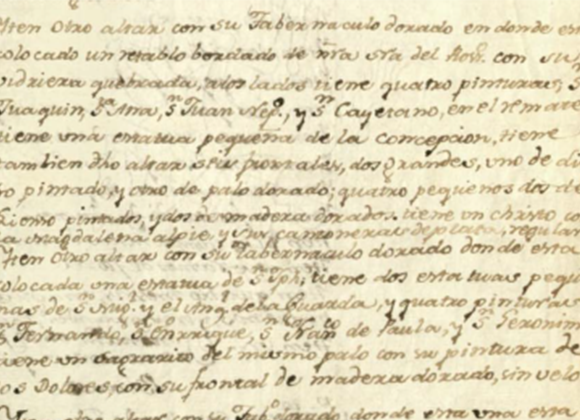 Iten Otro altar con su Tabernaculo dorado en donde est
colocado un retablo bordado de nra sra del Ros.º con su
vidriera quebrada, a los lados tiene quatro pinturas, S.
Juaquin, S.ta Ana, S.n Juan Nep.º, y S.n Cayetano, en el remate
tiene una estatua pequeña de la concepcion, tiene
tambien dho altar seis frontales, dos grandes, uno de
pintado, y otro de palo dorado; quatro pequeños dos de
pintados, y dos de madera dorados, tiene un christo co
la Magdalena al pie y sus cantoneras de plata, regular
Iten Otro altar con su tabernaculo dorado donde esta
colocada una estatua de S.n Jph, tiene dos estatuas pequ
ñas de S.n Mig.l y el Ang.l de la Guarda, y quatro pinturas
S.n Fernando, S.n Enrrique, S.n Fran.co de Paula, y S.n Geronim
tiene un sagrario del mismo palo con su pintura de
los Dolores, con su frontal de madera dorado, sin velo
otro altar con su Tab.º dorado donde esta una esta